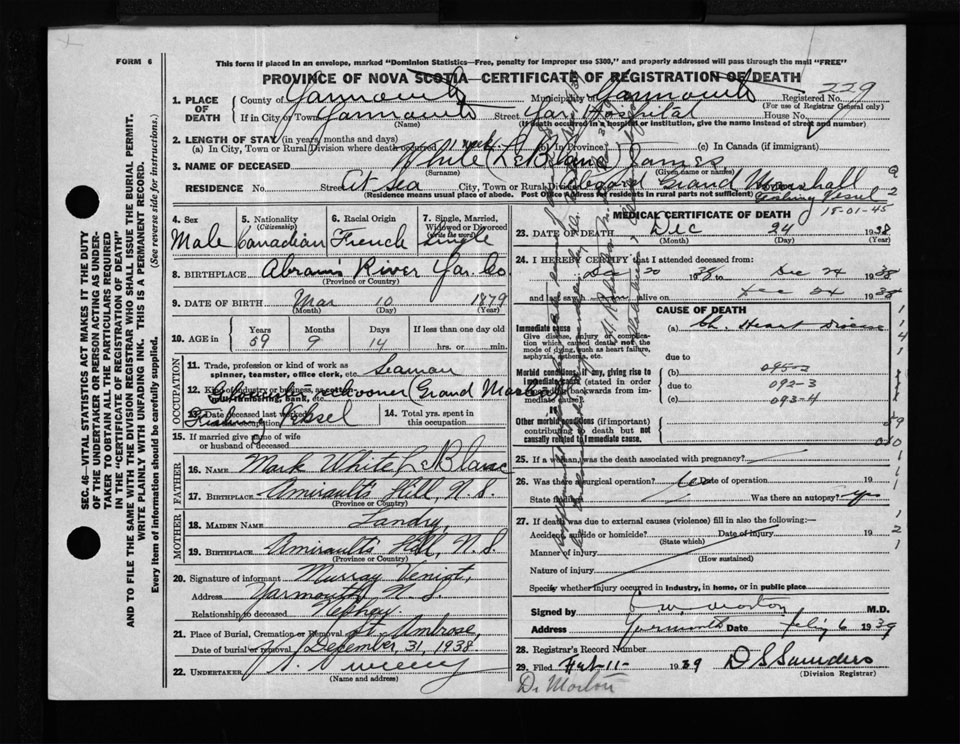 FORM 6
This form if placed in an envelope, marked "Dominion Statistics—Free, penalty for improper use $300," and properly addressed will pass through the mail "FREE"
PROVINCE OF NOVA SCOTIA—CERTIFICATE OF REGISTRATION OF DEATH
229
1. PLACE OF DEATH County of Yarmouth Municipality of Yarmouth Registered No.
(For use of Registrar General only)
If in City or Town Yarmouth Street Yar. Hospital House No.
(Name) (If death occurred in a hospital or institution, give the name instead of street and number)
2. LENGTH OF STAY (in years, months and days)
(a) In City, Town or Rural Division where death occurred 1 week (b) In Province (c) In Canada (if immigrant)
3. NAME OF DECEASED White (LeBlanc) James
(Surname) (Given name or names)
RESIDENCE No Street At sea City, Town or Rural Division aboard Grand Marshall
(Residence means usual place of abode. Post Office Address for residents in rural parts not sufficient) Fishing Vessel
15-01-45
4. Sex Male
5. Nationality (Citizenship) Canadian
6. Racial Origin French
7. Single, Married, Widowed or Divorced (write the word) Single
8. BIRTHPLACE Abram's River Yar. Co.
(Province or Country)
9. DATE OF BIRTH Mar 10 1879
(Month) (Day) (Year)
10. AGE in Years 59 Months 9 Days 14 If less than one day old hrs. or min.
OCCUPATION
11. Trade, profession or kind of work as spinner, teamster, office clerk, etc. Seaman
12. Kind of industry or business, as cotton mill, lumbering, bank, etc. Schooner (Grand Marshal)
13. Date deceased last worked at this occupation Fishing Vessel
14. Total yrs. spent in this occupation
15. If married give name of wife or husband of deceased
FATHER
16. NAME Mark White LeBlanc
17. BIRTHPLACE Amirault's Hill, N.S.
(Province or Country)
MOTHER
18. MAIDEN NAME Landry,
19. BIRTHPLACE Amirault's Hill, N.S.
(Province or Country)
20. Signature of informant Murray Veniot,
Address Yarmouth N.S.
Relationship to deceased Nephew
21. Place of Burial, Cremation or Removal St. Ambrose,
Date of burial or removal December, 31, 1938.
22. UNDERTAKER Sweeny
(Name and address)
MEDICAL CERTIFICATE OF DEATH
23. DATE OF DEATH Dec 24 1938
(Month) (Day) (Year)
24. I HEREBY CERTIFY that I attended deceased from:
Dec 20 1938 to Dec 24 1938
and last saw alive on Dec 24 1938
CAUSE OF DEATH
Immediate cause
Give disease, injury or complication which caused death not the mode of dying, such as heart failure, asphyxia, asthenia, etc.
(a) Ch. Heart Disease
due to
Morbid conditions, if any, giving rise to immediate cause (stated in order proceeding backwards from immediate cause)
(b) 095-2
due to 092-3
(c) 093-4
Other morbid conditions (if important) contributing to death but not causally related to immediate cause.
25. If a woman, was the death associated with pregnancy?
26. Was there a surgical operation? Date of operation 19
State findings Was there an autopsy? yes
27. If death was due to external causes (violence) fill in also the following:—
Accident, suicide or homicide? Date of injury 19
(State which)
Manner of injury
(How sustained)
Nature of injury
Specify whether injury occurred in industry, in home, or in public place
Signed by Morton M.D.
Address Yarmouth Date Feb 6 1939
28. Registrar's Record Number
29. Filed Feb-11- 1939 D S Saunders
(Division Registrar)
Dr Morton
SEC. 46—VITAL STATISTICS ACT MAKES IT THE DUTY
OF THE UNDERTAKER OR PERSON ACTING AS UNDERTAKER TO OBTAIN ALL THE PARTICULARS REQUIRED
IN THE "CERTIFICATE OF REGISTRATION OF DEATH"
AND TO FILE THE SAME WITH THE DIVISION REGISTRAR WHO SHALL ISSUE THE BURIAL PERMIT.
WRITE PLAINLY WITH UNFADING INK. THIS IS A PERMANENT RECORD.
Every item of Information should be carefully supplied. (See reverse side for instructions.)